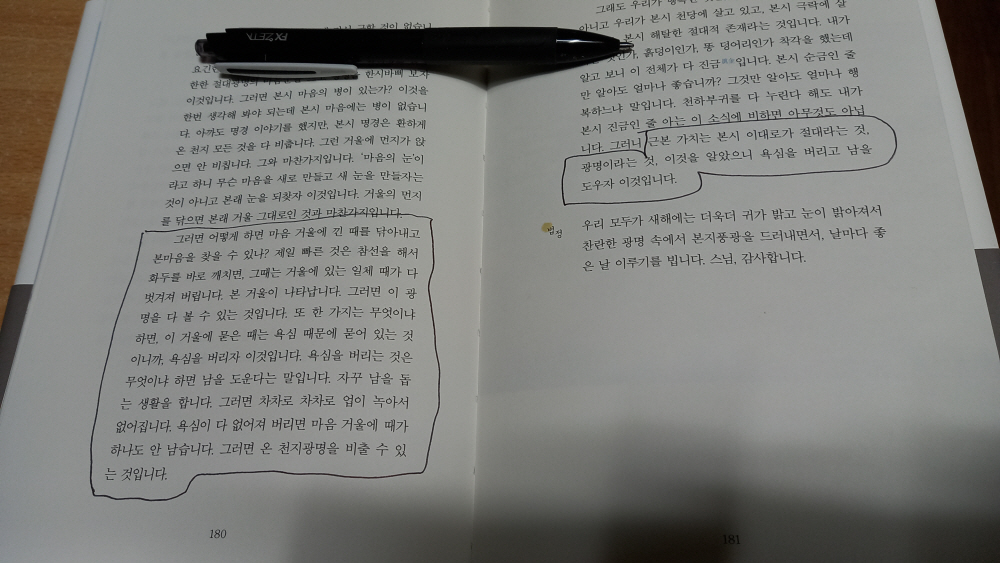 요긴한
한시바삐 보자
한한 절대광명의
이것입니다. 그러면 본시 마음의 병이 있는가? 이것을
한번 생각해 봐야 되는데 본시 마음에는 병이 없습니
다. 아까도 명경 이야기를 했지만, 본시 명경은 환하게
온 천지 모든 것을 다 비춥니다. 그런 거울에 먼지가 앉
으면 안 비칩니다. 그와 마찬가지입니다. '마음의 눈'이
라고 하니 무슨 마음을 새로 만들고 새 눈을 만들자는
것이 아니고 본래 눈을 되찾자 이것입니다. 거울의 먼지
를 닦으면 본래 거울 그대로인 것과 마찬가지입니다.
그러면 어떻게 하면 마음 거울에 낀 때를 닦아내고
본마음을 찾을 수 있나? 제일 빠른 것은 참선을 해서
화두를 바로 깨치면, 그때는 거울에 있는 일체 때가 다
벗겨져 버립니다. 본 거울이 나타납니다. 그러면 이 광
명을 다 볼 수 있는 것입니다. 또 한 가지는 무엇이냐
하면, 이 거울에 묻은 때는 욕심 때문에 묻어 있는 것
이니까, 욕심을 버리자 이것입니다. 욕심을 버리는 것은
무엇이냐 하면 남을 도운다는 말입니다. 자꾸 남을 돕
는 생활을 합니다. 그러면 차차로 차차로 업이 녹아서
없어집니다. 욕심이 다 없어져 버리면 마음 거울에 때가
하나도 안 남습니다. 그러면 온 천지광명을 비출 수 있
는 것입니다.
180
FX ZETA
그래도 우리가
아니고 우리가 본시 천당에 살고 있고, 본시 극락에 살
본시 해탈한 절대적 존재라는 것입니다. 내가
흙덩이인가, 똥 덩어리인가 착각을 했는데
알고 보니 이 전체가 다 진금眞金입니다. 본시 순금인 줄
만 알아도 얼마나 좋습니까? 그것만 알아도 얼마나 행
복하느냐 말입니다. 천하부귀를 다 누린다 해도 내가
본시 진금인 줄 아는 이 소식에 비하면 아무것도 아닙
니다. 그러니 근본 가치는 본시 이대로가 절대라는 것,
광명이라는 것, 이것을 알았으니 욕심을 버리고 남을
도우자 이것입니다.
법정
우리 모두가 새해에는 더욱더 귀가 밝고 눈이 밝아져서
찬란한 광명 속에서 본지풍광을 드러내면서, 날마다 좋
은 날 이루기를 빕니다. 스님, 감사합니다.
181